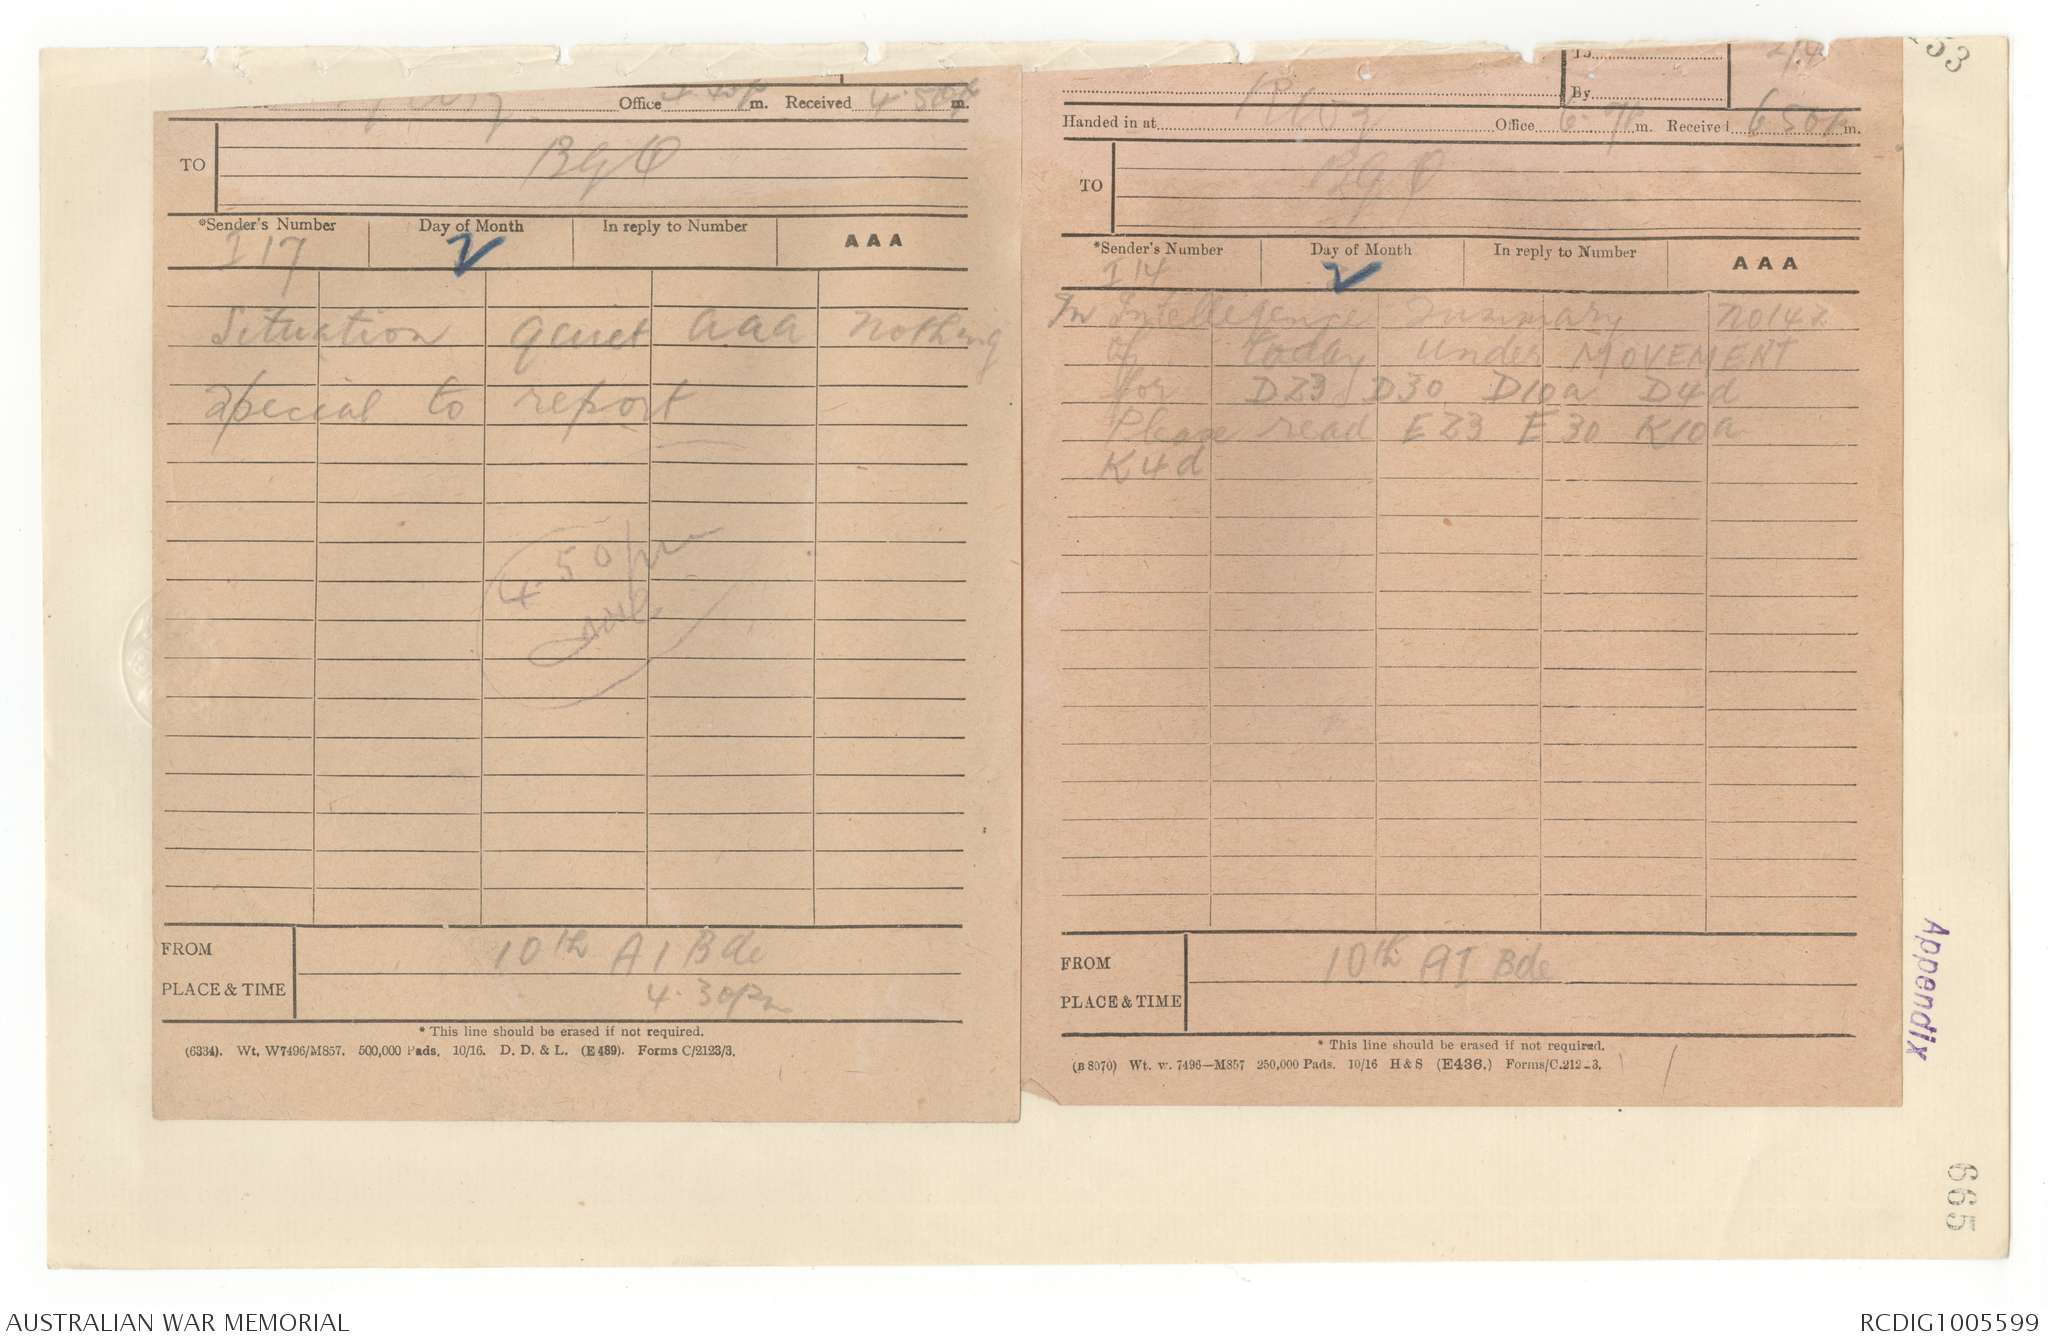 Office 4.45p m. Received 4.50p m.
TO BGO
*Sender's Number Day of Month In reply to Number AAA
I 17 2
Situation quiet aaa nothing
special to report
4.50pm
FROM 10th A I Bde
PLACE & TIME 4.30pm
* This line should be erased if not required.
(6334). Wt. W7496/M857. 500,000 Pads. 10/16. D. D. & L. (E 489). Forms C/2123/3.
53
To
By
Handed in at Office 6. m. Received 6 50p m.
TO BGO
*Sender's Number Day of Month In reply to Number AAA
I 14 2
In Intelligence Summary no 142
of today under MOVEMENT
for D23 D30 D10a D4d
Please read E23 E30 K10a
K4d
FROM 10th AI Bde
PLACE & TIME
* This line should be erased if not required.
(B 8070) Wt. w. 7496—M857 250,000 Pads. 10/16 H & S (E436.) Forms/C.2123.
Appendix
665
AUSTRALIAN WAR MEMORIAL
RCDIG1005599